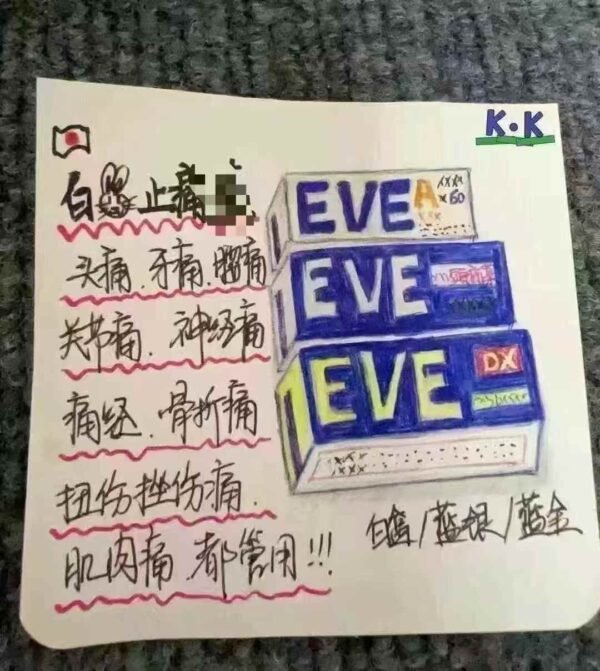 K.K
白兔止痛
头痛、牙痛、腰痛
关节痛、神经痛
痛经、骨折痛
扭伤挫伤痛、
肌肉痛 都管用!!!
EVE A
x60
EVE
EVE DX
白盒/蓝银/蓝金